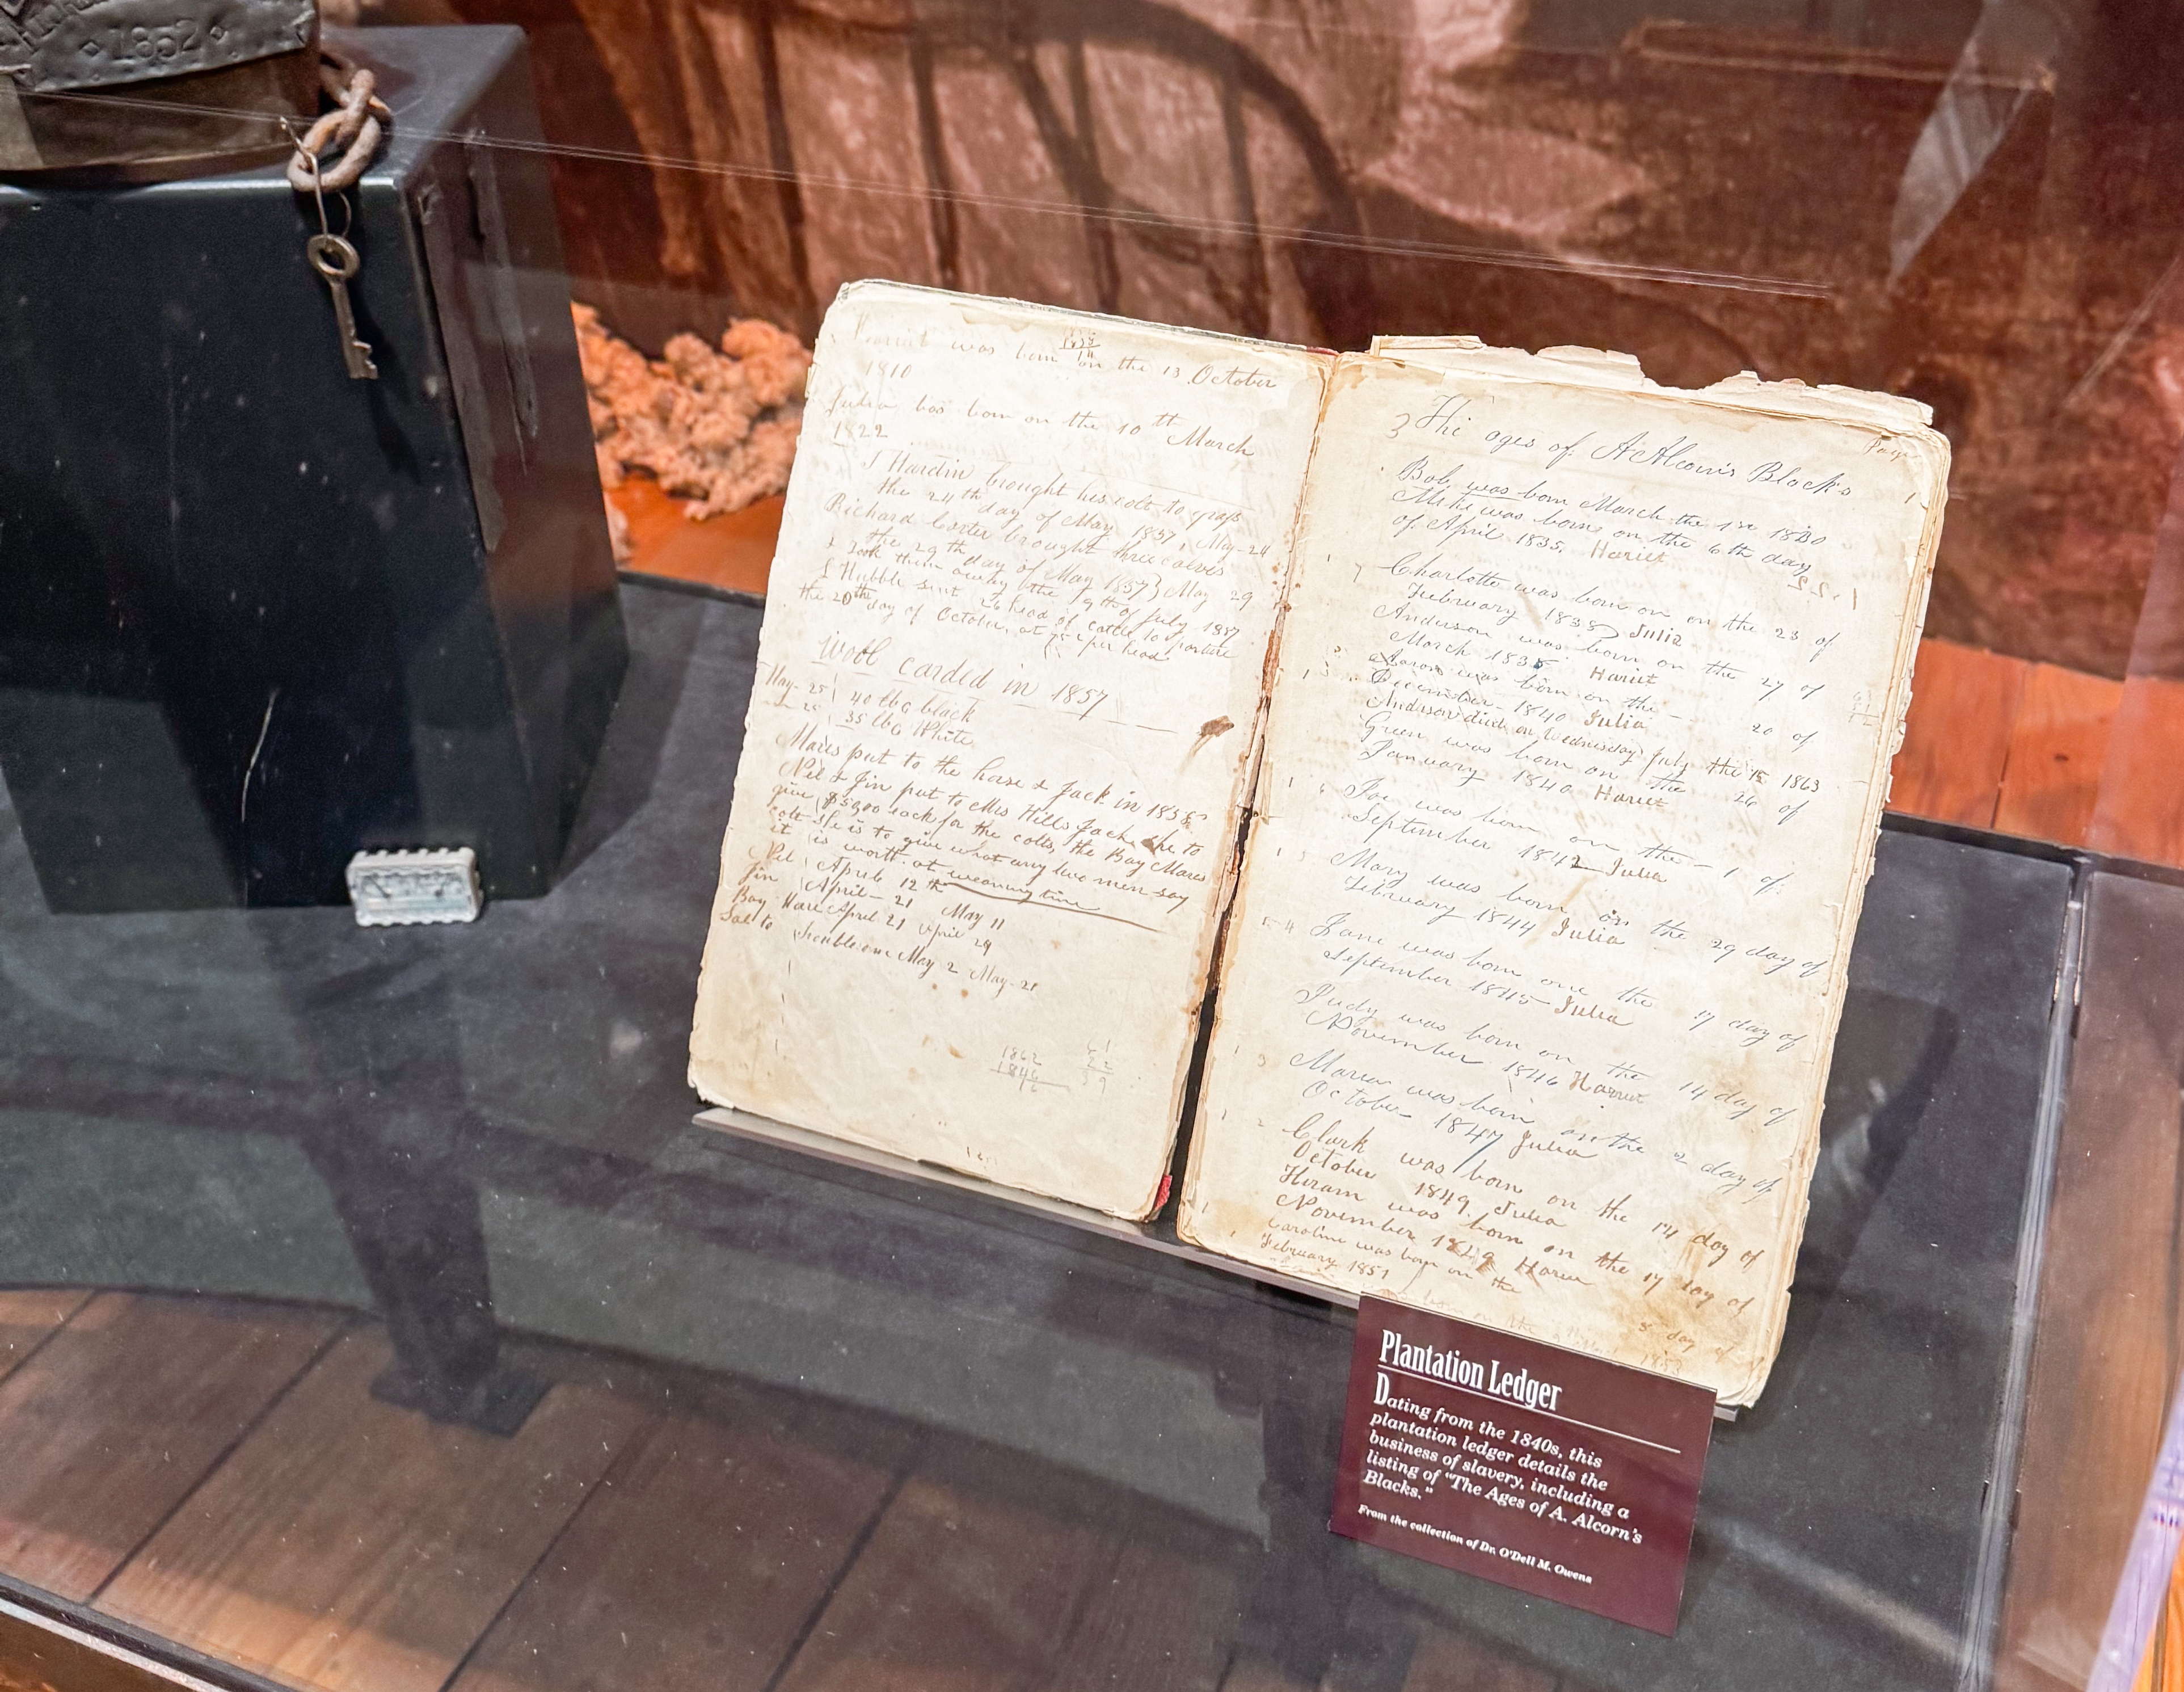 1852
was born on the 13 October
1810
Julia was born on the 10th March
1822
J Hardin brought his colt to grass
the 24th day of May 1857, May-24
Richard Carter brought three calvs
the 29th day of May 1857 } May 29
& took them away the 9th of July 1857
J Hubble sent 26 head of cattle to pasture
the 20th day of October, at per head
Wool carded in 1857
May-25 40 lbs black
25 35 lbs White
Mares put to the horse & Jack in 1858
Nel & Jin put to Mrs Hills Jack she to
give $50,00 each for the colts, the Bay Mares
colt she is to give what any two men say
it is worth at weaning time
Nel April 12th
Jin April-21 May 11
Bay Mare April 21 April 29
Sal to May 2 May-21
1862
1846
3 The ages of A Alcorn's Blacks
Page 1
Bob was born March the 1st
was born on the 6th day
of April 1835. Hariet
Charlotte was born on on the 23 of
February 1838 Julia
Anderson was born on the 27 of
March 1838 Hariet
Aaron was born on the - 20 of
December - 1840 Julia
Anderson died on Wednesday July the 15 1863
Green was born on the 26 of
January 1840 Hariet
Joe was born on the - 1 of
September 1842 Julia
Mary was born on the 29 day of
February 1844 Julia
Jane was born one the 17 day of
September 1845 Julia
Judy was born on the 14 day of
November 1846 Hariet
Maria was born on the 2 day of
October 1847 Julia
Clark was born on the 14 day of
October 1849. Julia
Hiram was born on the 17 day of
November 1849
Caroline was born on the 8 day of
February 1851
Plantation Ledger
Dating from the 1840s, this
plantation ledger details the
business of slavery, including a
listing of "The Ages of A. Alcorn's
Blacks."
From the collection of Dr. O'Dell M. Owens